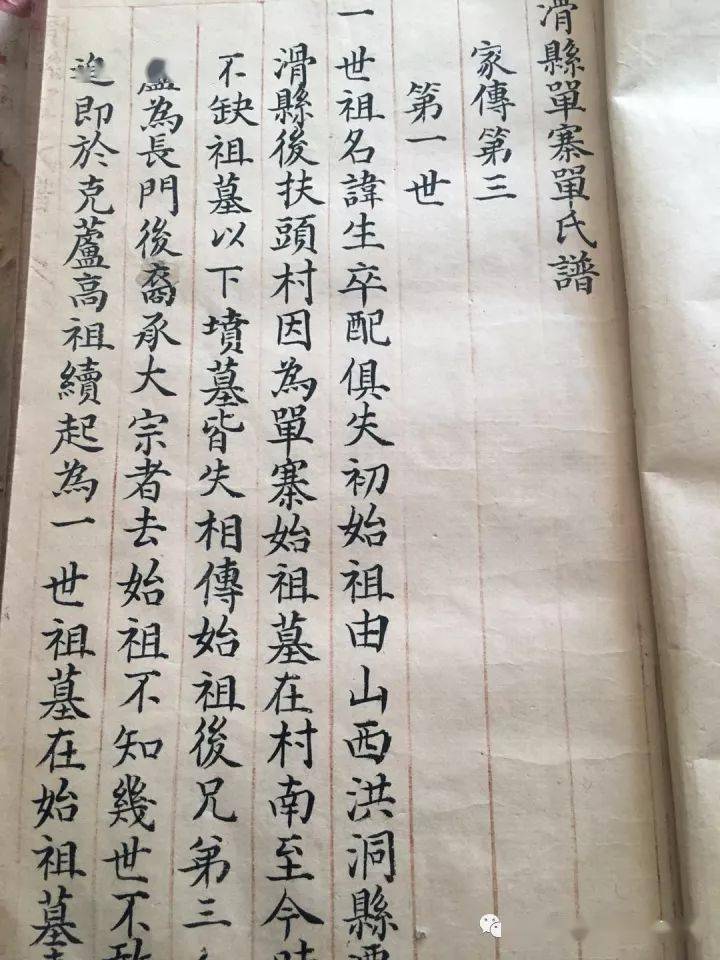 滑縣單寨單氏譜
家傳第三
第一世
一世祖名諱生卒配俱失初始祖由山西洪洞縣
滑縣後扶頭村因為單寨始祖墓在村南至今
不缺祖墓以下墳墓皆失相傳始祖後兄第三
為長門後裔承大宗者去始祖不知幾世不敢
即於克蘆高祖續起為一世祖墓在始祖墓